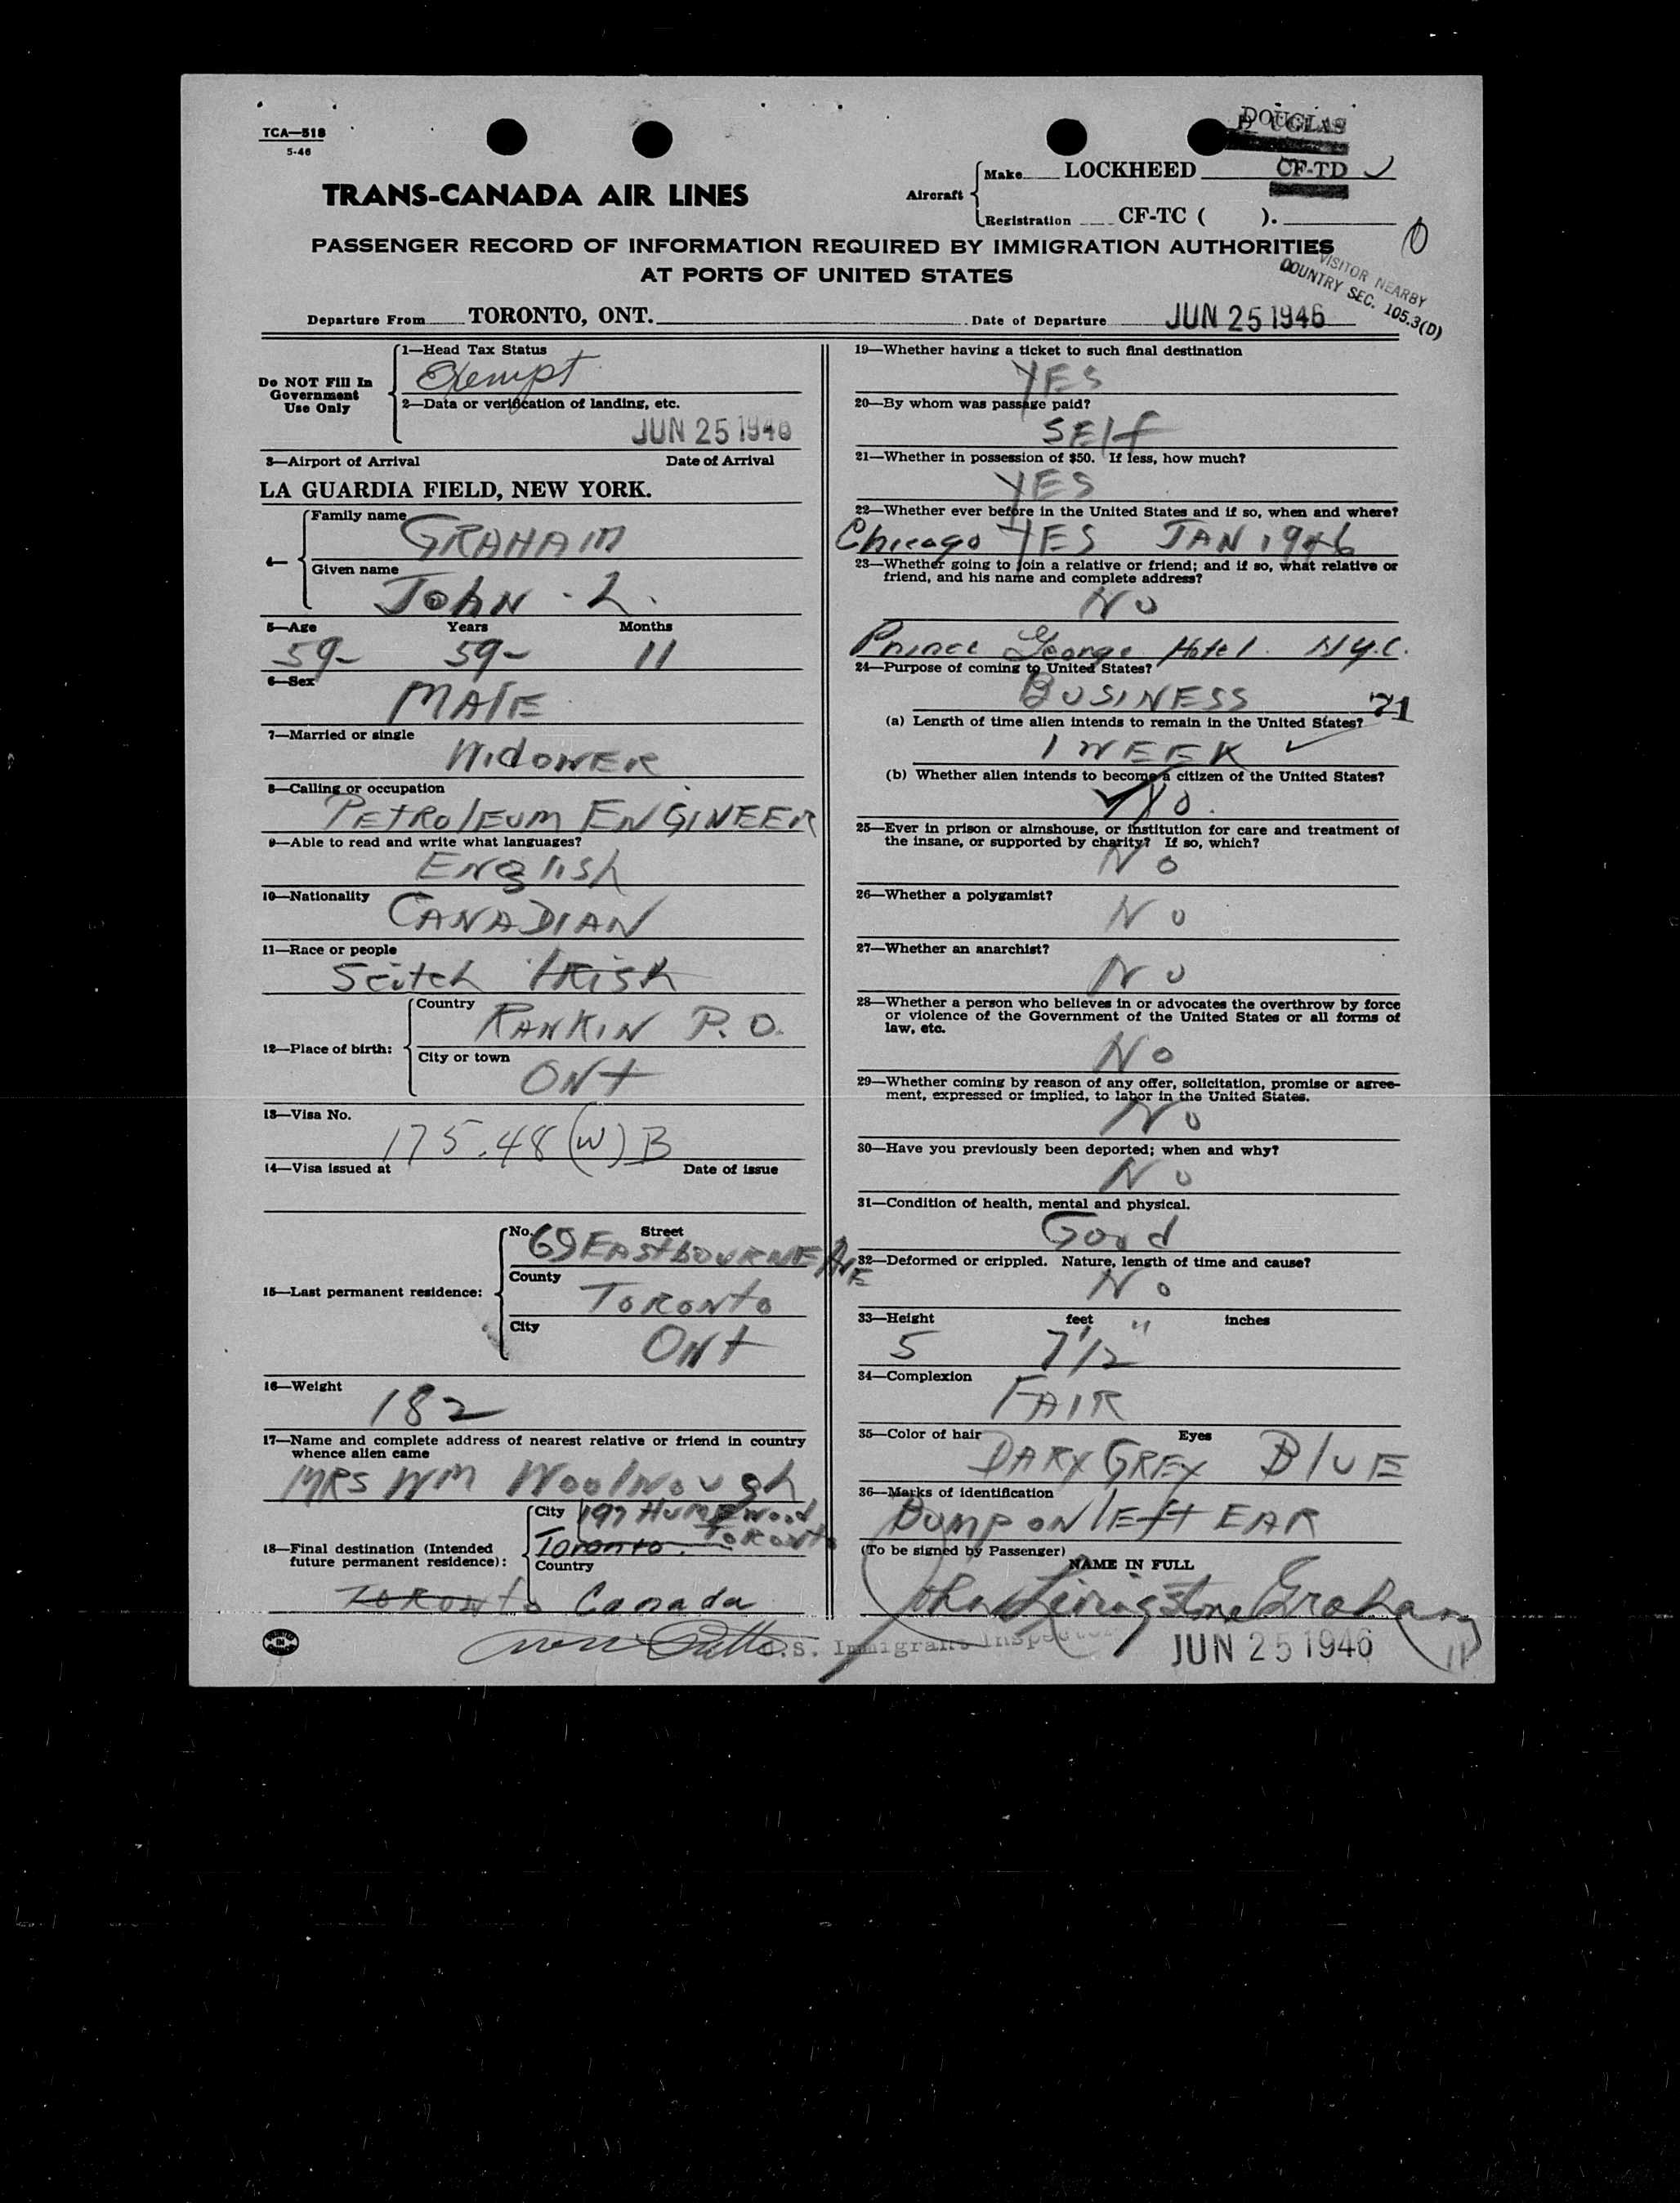 TCA—518
5-46
DOUGLAS
TRANS-CANADA AIR LINES
Aircraft
Make LOCKHEED CF-TD
Registration CF-TC ( ).
PASSENGER RECORD OF INFORMATION REQUIRED BY IMMIGRATION AUTHORITIES
AT PORTS OF UNITED STATES
VISITOR NEARBY
COUNTRY SEC. 105.3(D)
Departure From TORONTO, ONT. Date of Departure JUN 25 1946
Do NOT Fill In
Government
Use Only
1—Head Tax Status
Exempt
2—Data or verification of landing, etc.
JUN 25 1946
3—Airport of Arrival Date of Arrival
LA GUARDIA FIELD, NEW YORK.
4—
Family name
GRAHAM
Given name
John . L.
5—Age Years Months
59- 59- 11
6—Sex
MAlE
7—Married or single
WidOWER
8—Calling or occupation
PEtROlEUM ENGINEER
9—Able to read and write what languages?
ENglish
10—Nationality
CANADIAN
11—Race or people
Scitch IRish
12—Place of birth:
Country
RANKIN P.O.
City or town
ONt
13—Visa No.
175.48 (W) B
14—Visa issued at Date of issue
15—Last permanent residence:
No. Street
69 EAStbOURNE AVE
County
TORONto
City
ONt
16—Weight
182
17—Name and complete address of nearest relative or friend in country
whence alien came
MRS WM Woolnough
197 HUMEWood
TORONto
18—Final destination (Intended
future permanent residence):
City
Toronto.
Country
TORONto Canada
U.S. Immigrant Inspector
19—Whether having a ticket to such final destination
YES
20—By whom was passage paid?
SElf
21—Whether in possession of $50. If less, how much?
YES
22—Whether ever before in the United States and if so, when and where?
Chicago YES JAN 1946
23—Whether going to join a relative or friend; and if so, what relative or
friend, and his name and complete address?
No
Prince George Hotel. N.Y.C.
24—Purpose of coming to United States?
BUSINESS 71
(a) Length of time alien intends to remain in the United States?
1 WEEK
(b) Whether alien intends to become a citizen of the United States?
No.
25—Ever in prison or almshouse, or institution for care and treatment of
the insane, or supported by charity? If so, which?
No
26—Whether a polygamist?
No
27—Whether an anarchist?
No
28—Whether a person who believes in or advocates the overthrow by force
or violence of the Government of the United States or all forms of
law, etc.
No
29—Whether coming by reason of any offer, solicitation, promise or agree-
ment, expressed or implied, to labor in the United States.
No
30—Have you previously been deported; when and why?
No
31—Condition of health, mental and physical.
Good
32—Deformed or crippled. Nature, length of time and cause?
No
33—Height feet inches
5 7 1/2"
34—Complexion
FAIR
35—Color of hair Eyes
DARK GREY BlUE
36—Marks of identification
BUMP ON lEft EAR
(To be signed by Passenger)
NAME IN FULL
John Livingstone Graham
JUN 25 1946